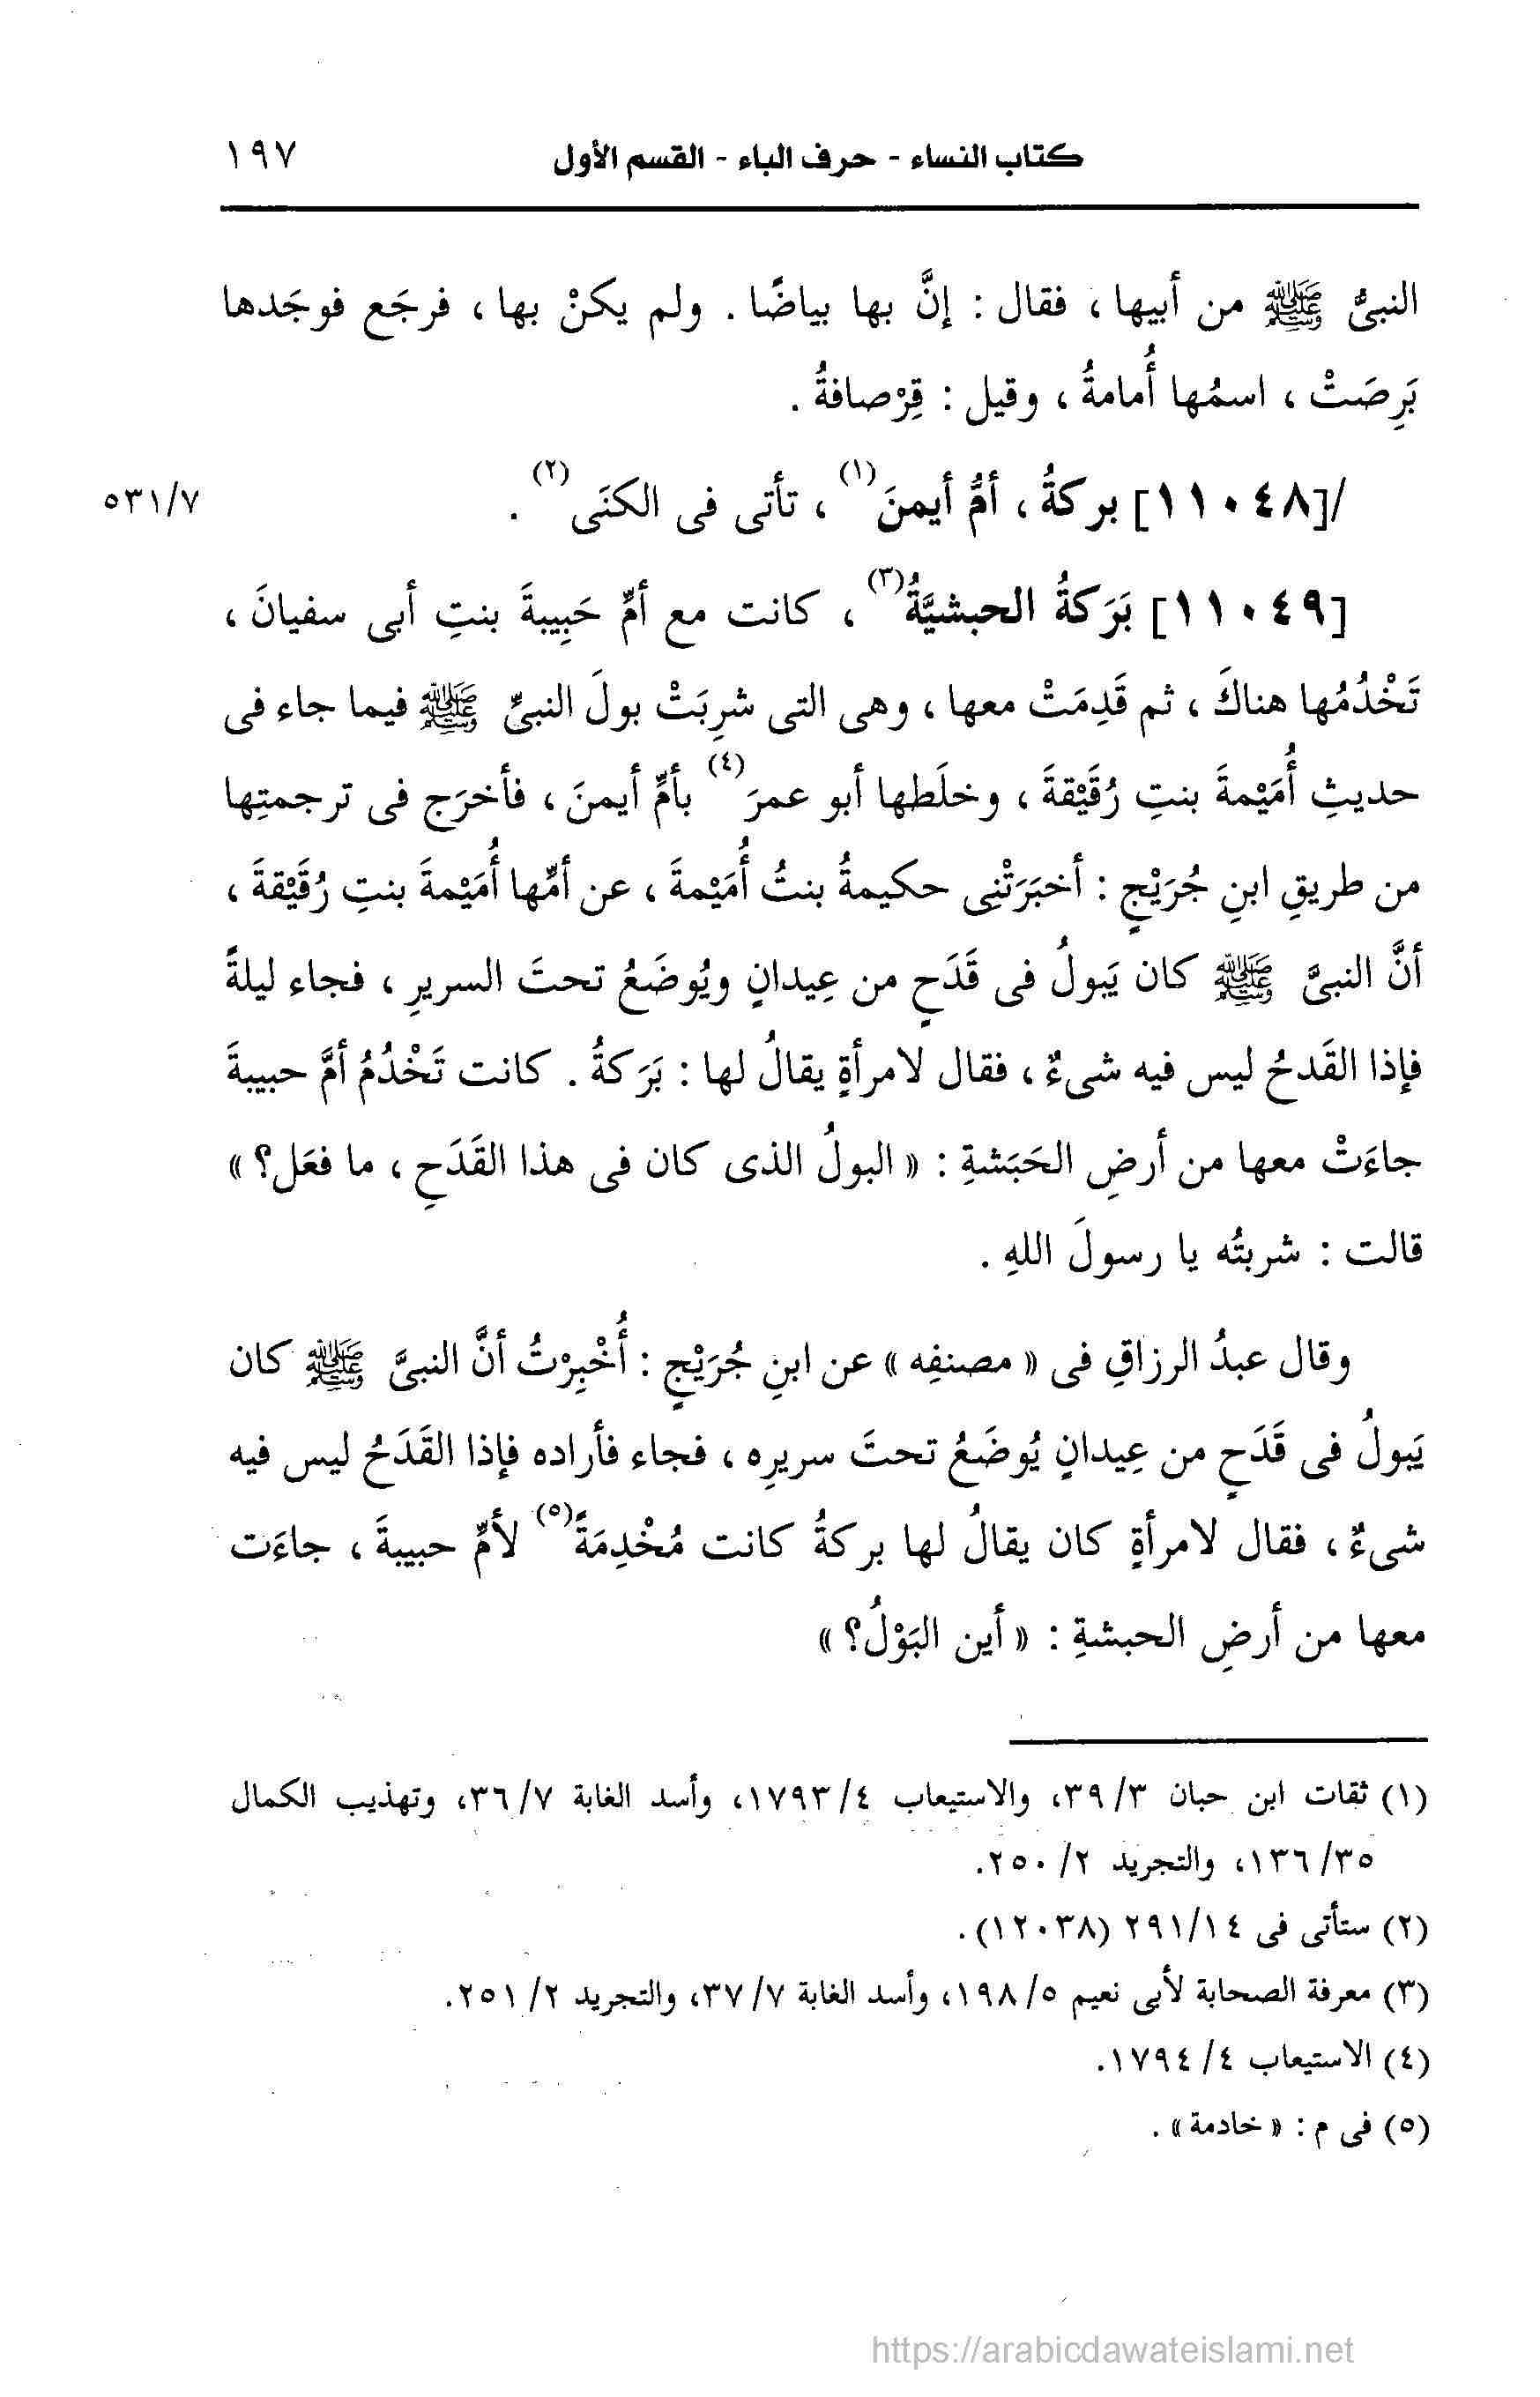 كتاب النساء - حرف الباء - القسم الأول ١٩٧
النبىُّ ﷺ من أبيها ، فقال : إنَّ بها بياضًا . ولم يكنْ بها ، فرجَع فوجَدها
بَرِصَتْ ، اسمُها أُمامةُ ، وقيل : قِرْصافةُ .
/[١١٠٤٨] بركةُ ، أمُّ أيمنَ(١) ، تأتى فى الكنَى(٢) . ٥٣١/٧
[١١٠٤٩] بَرَكةُ الحبشيَّةُ(٣) ، كانت مع أمِّ حَبِيبةَ بنتِ أبى سفيانَ ،
تَخْدُمُها هناكَ ، ثم قَدِمَتْ معها ، وهى التى شرِبَتْ بولَ النبىِّ ﷺ فيما جاء فى
حديثِ أُمَيْمةَ بنتِ رُقَيْقةَ ، وخلَطها أبو عمرَ(٤) بأمِّ أيمنَ ، فأخرَج فى ترجمتِها
من طريقِ ابنِ جُرَيْجٍ : أخبَرَتْنِى حكيمةُ بنتُ أُمَيْمةَ ، عن أمِّها أُمَيْمةَ بنتِ رُقَيْقةَ ،
أنَّ النبىَّ ﷺ كان يَبولُ فى قَدَحٍ من عِيدانٍ ويُوضَعُ تحتَ السريرِ ، فجاء ليلةً
فإذا القَدحُ ليس فيه شىءٌ ، فقال لامرأةٍ يقالُ لها : بَرَكةُ . كانت تَخْدُمُ أمَّ حبيبةَ
جاءَتْ معها من أرضِ الحَبَشةِ : « البولُ الذى كان فى هذا القَدَحِ ، ما فعَل؟ »
قالت : شربتُه يا رسولَ اللهِ .
وقال عبدُ الرزاقِ فى « مصنفِه » عن ابنِ جُرَيْجٍ : أُخْبِرْتُ أنَّ النبىَّ ﷺ كان
يَبولُ فى قَدَحٍ من عِيدانٍ يُوضَعُ تحتَ سريرِه ، فجاء فأراده فإذا القَدَحُ ليس فيه
شىءٌ ، فقال لامرأةٍ كان يقالُ لها بركةُ كانت مُخْدِمَةً(٥) لأمِّ حبيبةَ ، جاءَت
معها من أرضِ الحبشةِ : « أين البَوْلُ؟ »
(١) ثقات ابن حبان ٣/ ٣٩، والاستيعاب ٤/ ١٧٩٣، وأسد الغابة ٧/ ٣٦، وتهذيب الكمال
٣٥/ ١٣٦، والتجريد ٢/ ٢٥٠.
(٢) ستأتى فى ١٤/ ٢٩١ (١٢٠٣٨) .
(٣) معرفة الصحابة لأبى نعيم ٥/ ١٩٨، وأسد الغابة ٧/ ٣٧، والتجريد ٢/ ٢٥١.
(٤) الاستيعاب ٤/ ١٧٩٤.
(٥) فى م : « خادمة » .
https://arabicdawateislami.net